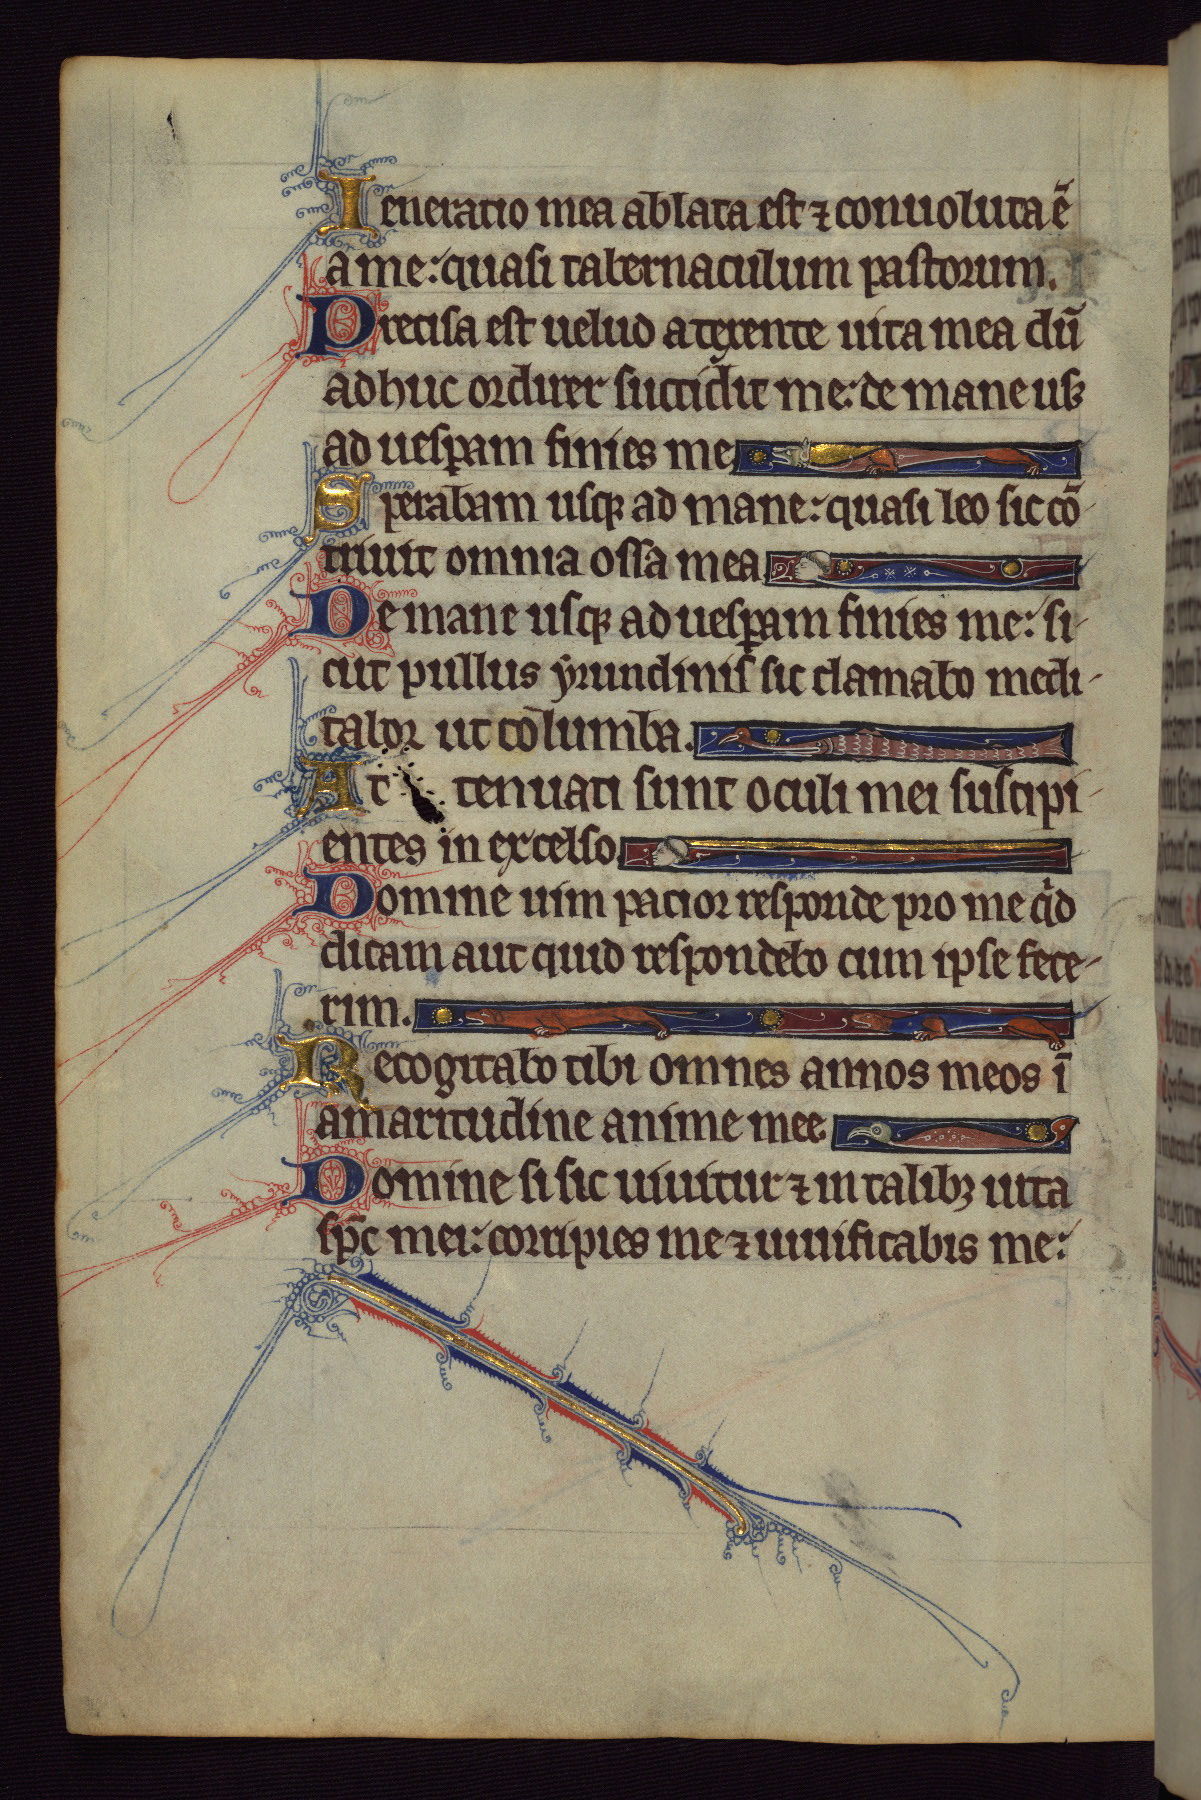 Ieneratio mea ablata est ⁊ conuoluta ē
a me: quasi tabernaculum pastorum.
Precisa est uelud a texente uita mea dū
adhuc ordirer succidit me: de mane usꝫ
ad uesꝑam finies me
Sperabam usqꝫ ad mane: quasi leo sic cō-
triuit omnia ossa mea
De mane usqꝫ ad uesꝑam finies me: si-
cut pullus yrundinis sic clamabo medi-
tabor ut columba.
At tenuati sunt oculi mei suscipi-
entes in excelso
Domine uim pacior responde pro me qid
dicam aut quid respondebo cum ipse fece-
rim.
Recogitabo tibi omnes annos meos ī
amaritudine anime mee
Domine si sic uiuitur ⁊ in talibꝫ uita
sp̄c mei: corripies me ⁊ uiuificabis me: